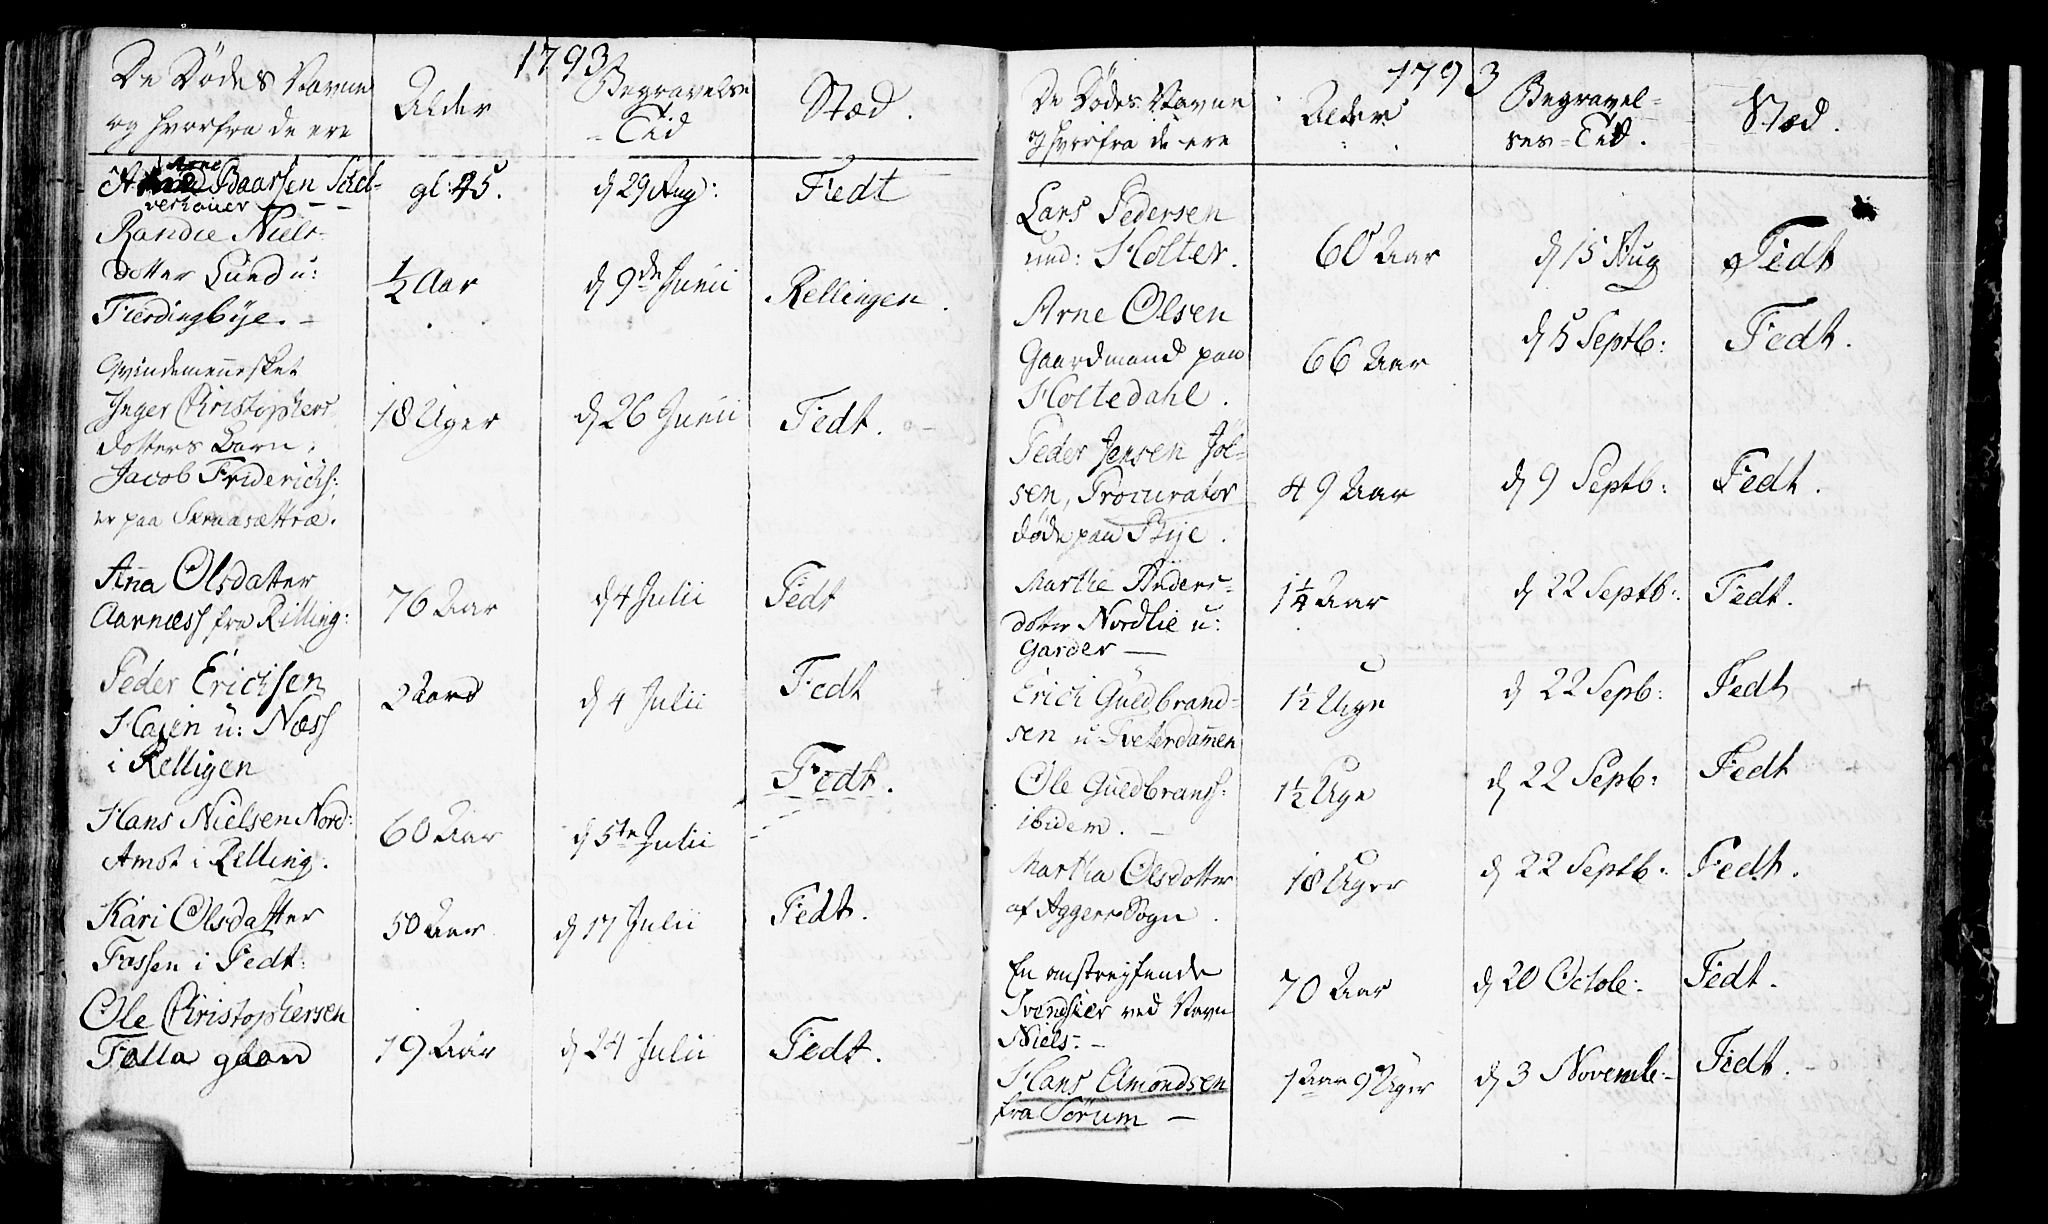 1793
De Dødes Navne
og hvorfra de ere
Alder
Begravelse
= Tid
Stæd.
Arne
Baarsen Söl-
verhauer
gl: 45.
d 29 Aug:
Fedt
Randie Niels-
dotter Lund u:
Fierdingbÿe. -
½ Aar
d 9de Junii
Rellingen.
Qvindemennesket
Inger Christophers
dotters Barn.
Jacob Friderichs:
er paa
18 Uger
d 26 Junii
Fedt.
Aña Olsdatter
Aarnæss fra Relling:
76 Aar
d 4 Julii
Fedt
Peder Erichsen
u: Næss
i Relligen
2 Aar
d 4 Julii
Fedt
Hans Nielsen Nord:
Amot i Relling.
60 Aar
d 5te Julii
Fedt.
Kari Olsdatter
Fossen i Fedt:
50 Aar
d 17 Julii
Fedt.
Ole Christophersen
Falla gaard
79 Aar
d 24 Julii
Fedt.
1793
De Dødes Navne
og hvorfra de ere
Alder
Begravel=
ses=Tid.
Stæd.
Lars Pedersen
und: Holter.
60 Aar
d 15 Aug
Fedt
Arne Olsen
Gaardmand paa
Holtedahl.
66 Aar
d 5 Septb:
Fedt.
Peder Jensen Jöl-
sen, Procurator
døde paa Bÿe.
49 Aar
d 9 Septb:
Fedt.
Marthe Anders-
doter Nordlie u:
Garder —
1¼ Aar
d 22 Septb:
Fedt.
Erich Guldbrand-
sen u Tveterdam̃en
1½ Uge
d 22 Sepb:
Fedt
Ole Guldbranss:
ibidem. -
1½ Uge
d 22 Sepb:
Fedt
Martha Olsdotter
af Aggers Sogn.
18 Uger
d 22 Septb:
Fedt.
En omstreyfende
Svendsker ved Navn
Niels- -
70 Aar
d 20 Octob:
Fedt.
Hans Amondsen
fra Sørum —
1 Aar 9 Uger
d 3 Novemb:
Fedt.